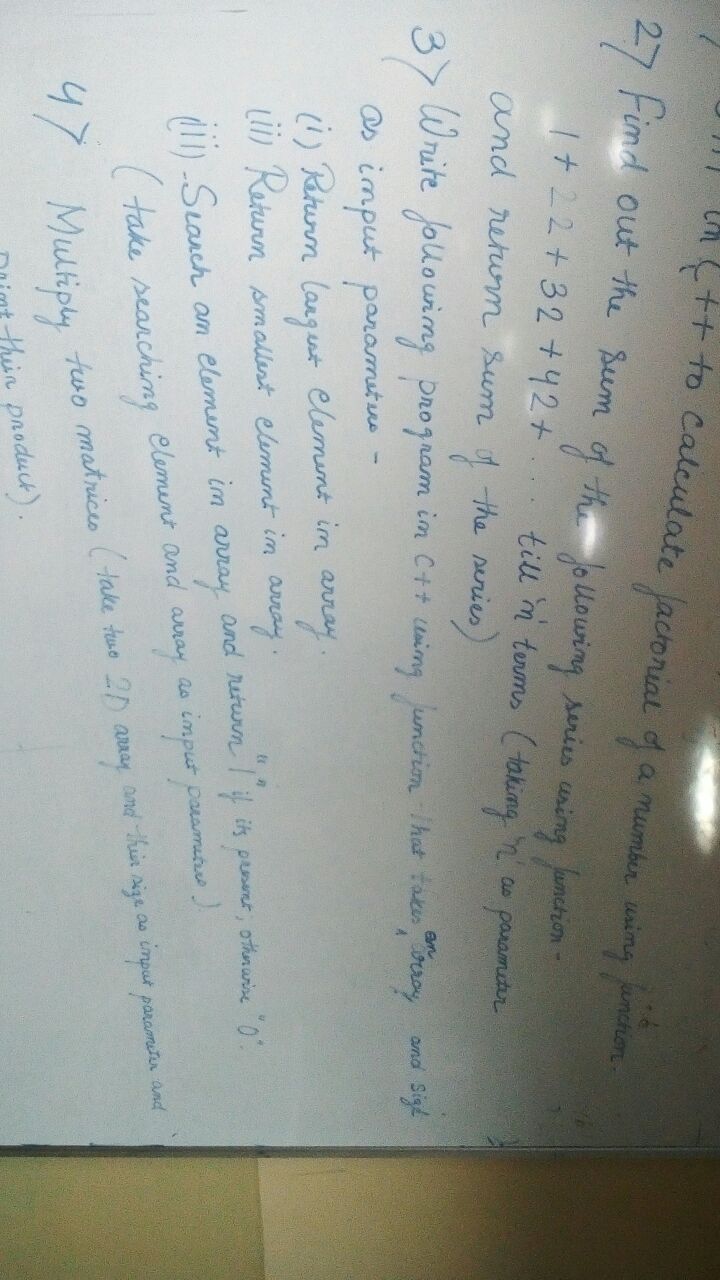 in C++ to calculate factorial of a number using function.
2> Find out the sum of the following series using function -
1 + 22 + 32 + 42 + ... till 'n' terms (taking 'n' as parameter
and return sum of the series)
3> Write following program in C++ using function that takes an array and size
as input parameters -
(i) Return largest element in array.
(ii) Return smallest element in array.
(iii) Search an element in array and return "1" if its present, otherwise "0".
(take searching element and array as input parameters).
4> Multiply two matrices (take two 2D array and their size as input parameter and
print their product).